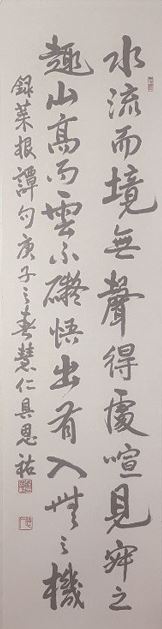 水流而境無聲得處喧見寂之
趣山高而雲不礙悟出有入無之機
錄菜根譚句庚子之春慧仁具思祐